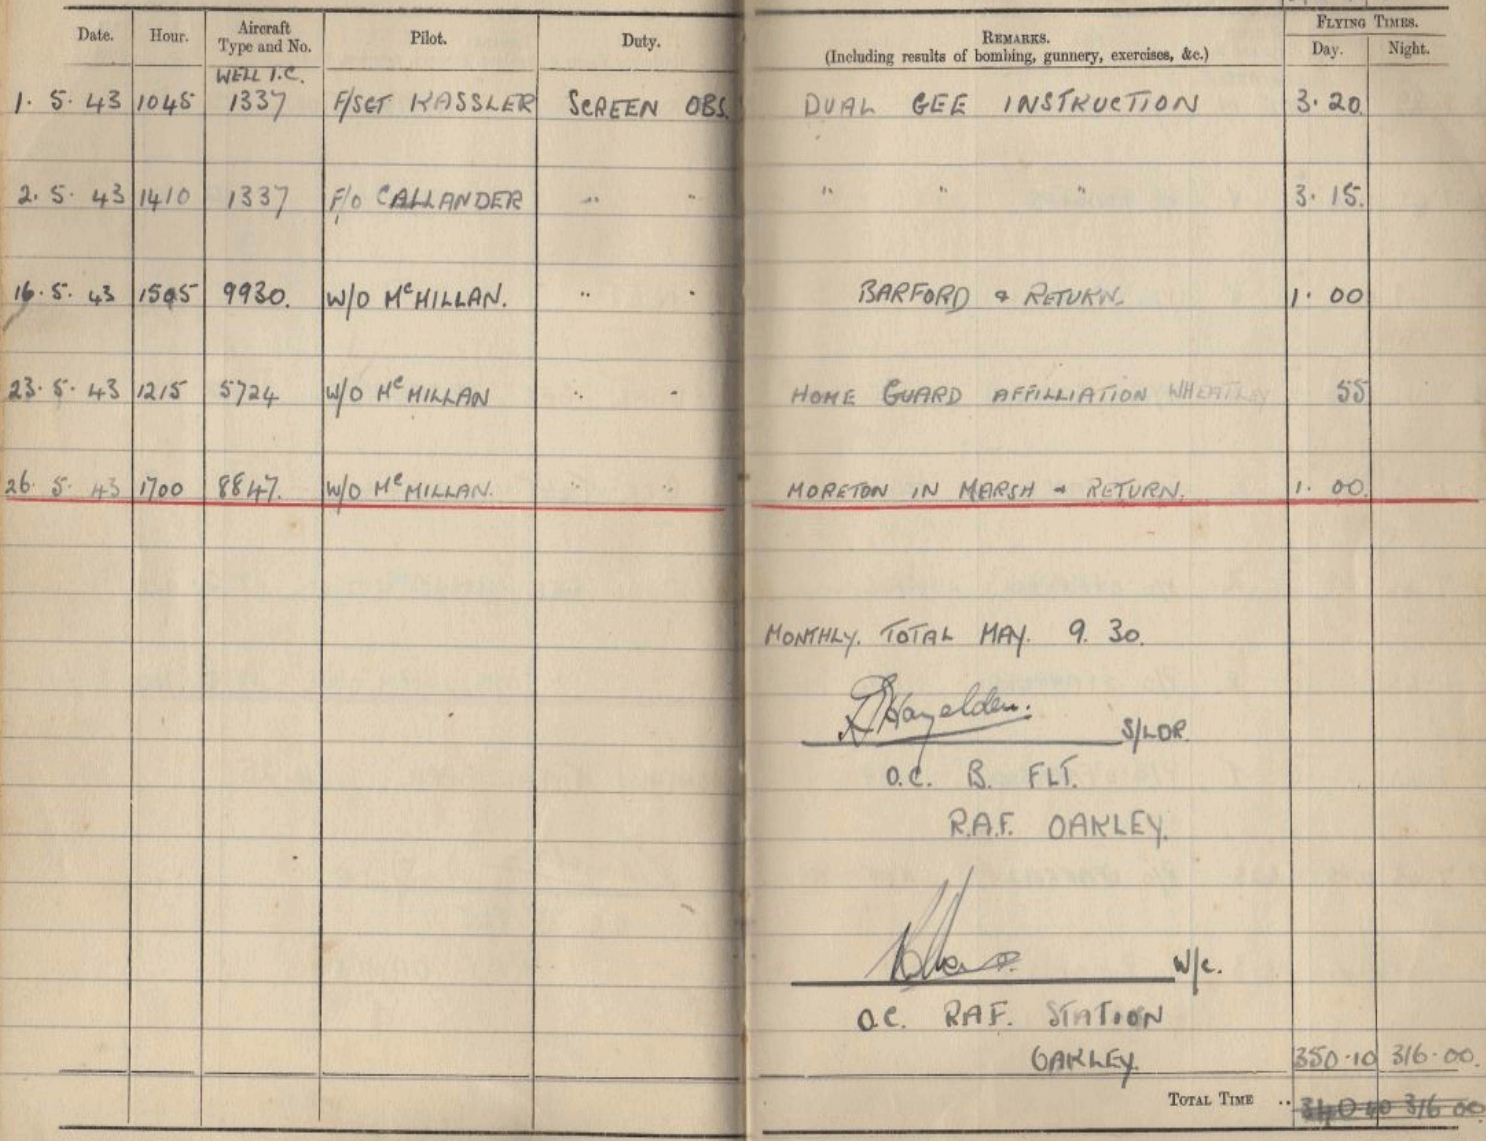 Date. Hour. Aircraft Type and No. Pilot. Duty. REMARKS. (Including results of bombing, gunnery, exercises, &c.) FLYING TIMES. Day. Night.
WELL I.C.
1. 5. 43 1045 1337 F/SGT KASSLER SCREEN OBS. DUAL GEE INSTRUCTION 3.20.
2. 5. 43 1410 1337 F/O CALLANDER " " " " " 3.15.
16. 5. 43 1505 9930. W/O McMILLAN. " " BARFORD & RETURN. 1.00
23. 5. 43 1215 5724 W/O McMILLAN " " HOME GUARD AFFILLIATION WHEATLEY 55
26. 5. 43 1700 8847. W/O McMILLAN. " " MORETON IN MARSH & RETURN. 1.00.
MONTHLY. TOTAL MAY. 9. 30.
Hazelden. S/LDR
O.C. B. FLT.
R.A.F. OAKLEY.
W/C.
O.C. RAF. STATION
OAKLEY. 350.10 316.00.
TOTAL TIME .. 340 40 316 00